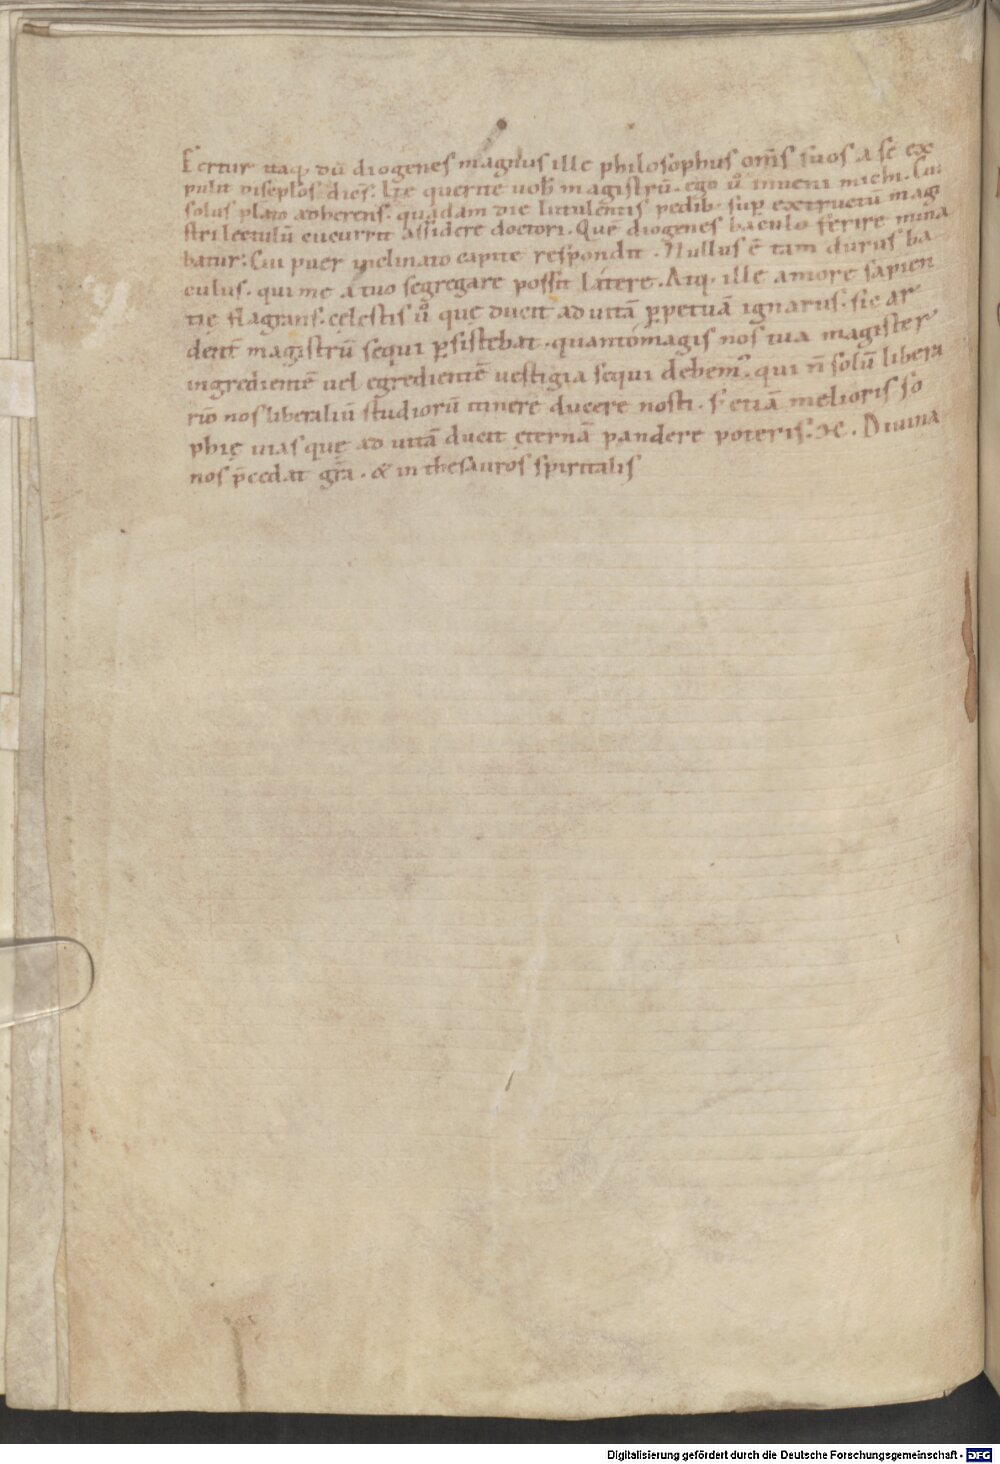 Fertur itaq; dũ diogenes magnus ille philosophus om̃s suos a se ex
pulit discipl̃os dicẽs. Ite querite uob̃ magistrũ. ego ũ inueni michi. Cui
solus plato adherens. quadam die lutulentis pedib; sup̱ extructũ magi
stri lectulũ cucurrit assidere doctori. Quẽ diogenes baculo ferire mina
batur; Cui puer inclinato capite respondit. Nullus ẽ tam durus ba
culus. qui me a tuo segregare possit latere. Atq; ille amore sapien
tie flagrans. celestis ũ que ducit ad uitã p̱petuã ignarus. sic ar
dent̃ magistrũ sequi p̱sistebat. quantómagis nos tua magister
ingredientẽ uel egredientẽ uestigia sequi debem᷒. qui ñ solũ libera
rio nos liberaliũ studiorũ itinere ducere nosti. s; etiã melioris so
phię uias quę ad uitã ducit ęternã pandere poteris. Diuina
nos p̃cedat gr̃a. & in thesauros spiritalis
Digitalisierung gefördert durch die Deutsche Forschungsgemeinschaft - DFG